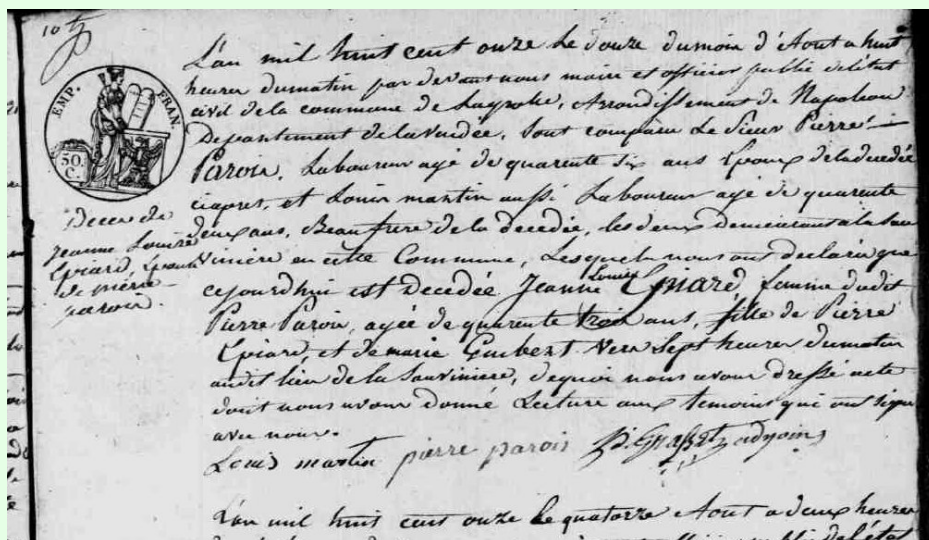 10
EMP. FRAN.
50.
C.
L'an mil huit cent onze Le douze dumois d'Aout a huit
heures dumatin par devant nous maire et officier public de l'état
civil de la commune de Arrondissement de Napoleon
Departement de la vendée, Sont comparu Le Sieur Pierre
Parois, Laboureur agé de quarente Six ans Epoux de la decedée
ciapres, et Louis martin aussi Laboureur agé de quarente
deux ans, Beaufrere de la decedée, les deux demeurant a la Sau
viniere en cette Commune, Lesquels nous ont declaré que
cejourdhui est decedée Jeanne Louise Epiard, femme dudit
Pierre Parois, agée de quarente trois ans, fille de Pierre
Epiard, et de marie Guibert vers Sept heures dumatin
audit lieu de la Sauviniere, dequoi nous avons dressé acte
dont nous avons donné Lecture aux temoins qui ont signé
avec nous.
Louis martin pierre parois adjoint
Deces de
Jeanne Louise
Epiard, Epouse
de pierre
parois.
L'an mil huit cent onze Le quatorze Aout a deux heures